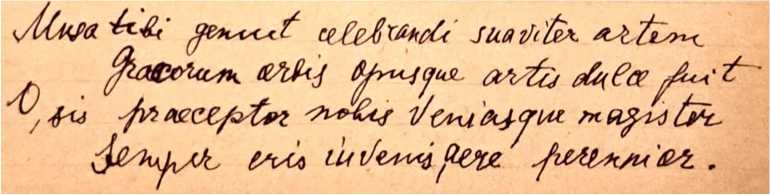 Musa tibi genuit celebrandi suaviter artem
Graecorum orbis opusque artis dulce fuit
O, sis praeceptor nobis veniasque magister
Semper eris iuvenis, aere perennior.